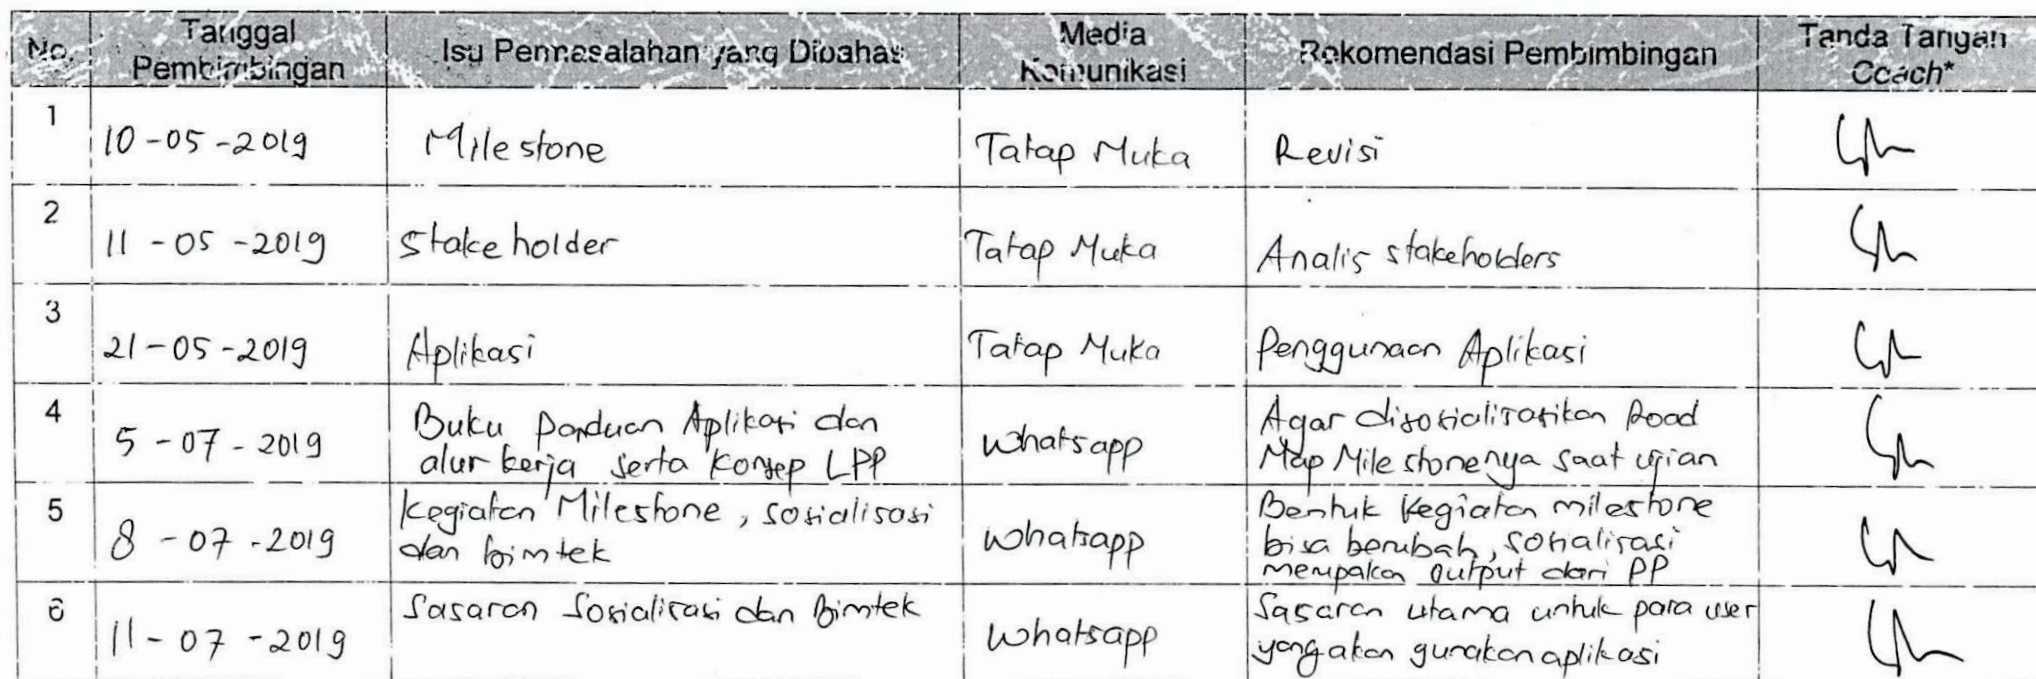 No.
Tanggal
Pembimbingan
Isu Permasalahan yang Dibahas
Media
Komunikasi
Rekomendasi Pembimbingan
Tanda Tangan
Coach*
1
10-05-2019
Milestone
Tatap Muka
Revisi
2
11-05-2019
Stakeholder
Tatap Muka
Analis stakeholders
3
21-05-2019
Aplikasi
Tatap Muka
Penggunaan Aplikasi
4
5-07-2019
Buku panduan Aplikasi dan
alur kerja serta Konsep LPP
Whatsapp
Agar disosialisasikan Road
Map Milestonenya saat ujian
5
8-07-2019
Kegiatan Milestone, sosialisasi
dan bimtek
Whatsapp
Bentuk Kegiatan milestone
bisa berubah, sosialisasi
merupakan output dari PP
6
11-07-2019
Sasaran Sosialisasi dan Bimtek
Whatsapp
Sasaran utama untuk para user
yang akan gunakan aplikasi